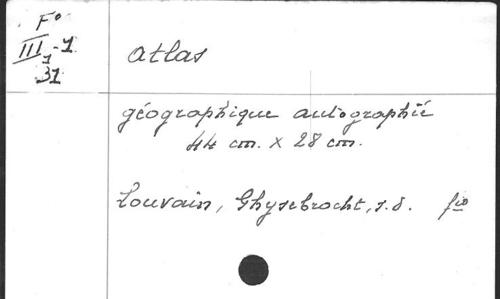 F°
III,-1
1
31
Atlas
géographique autographié
44 cm. x 28 cm.
Louvain, Ghysebrecht, s.d. fio